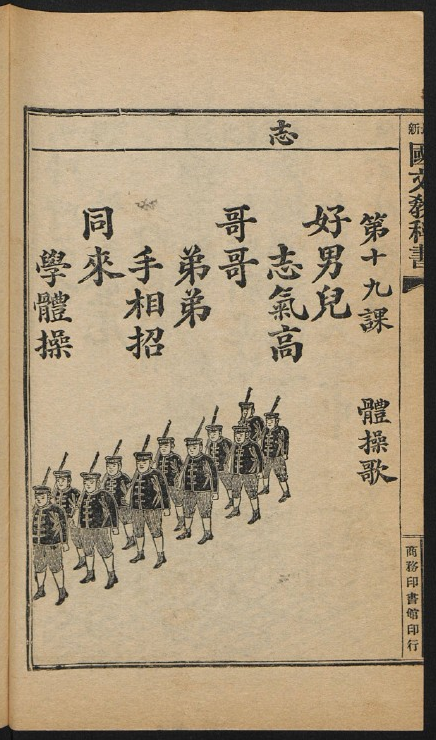 新國文教科書
商務印書館印行
志
第十九課　體操歌
好男兒
志氣高
哥哥
弟弟
手相招
同來
學體操